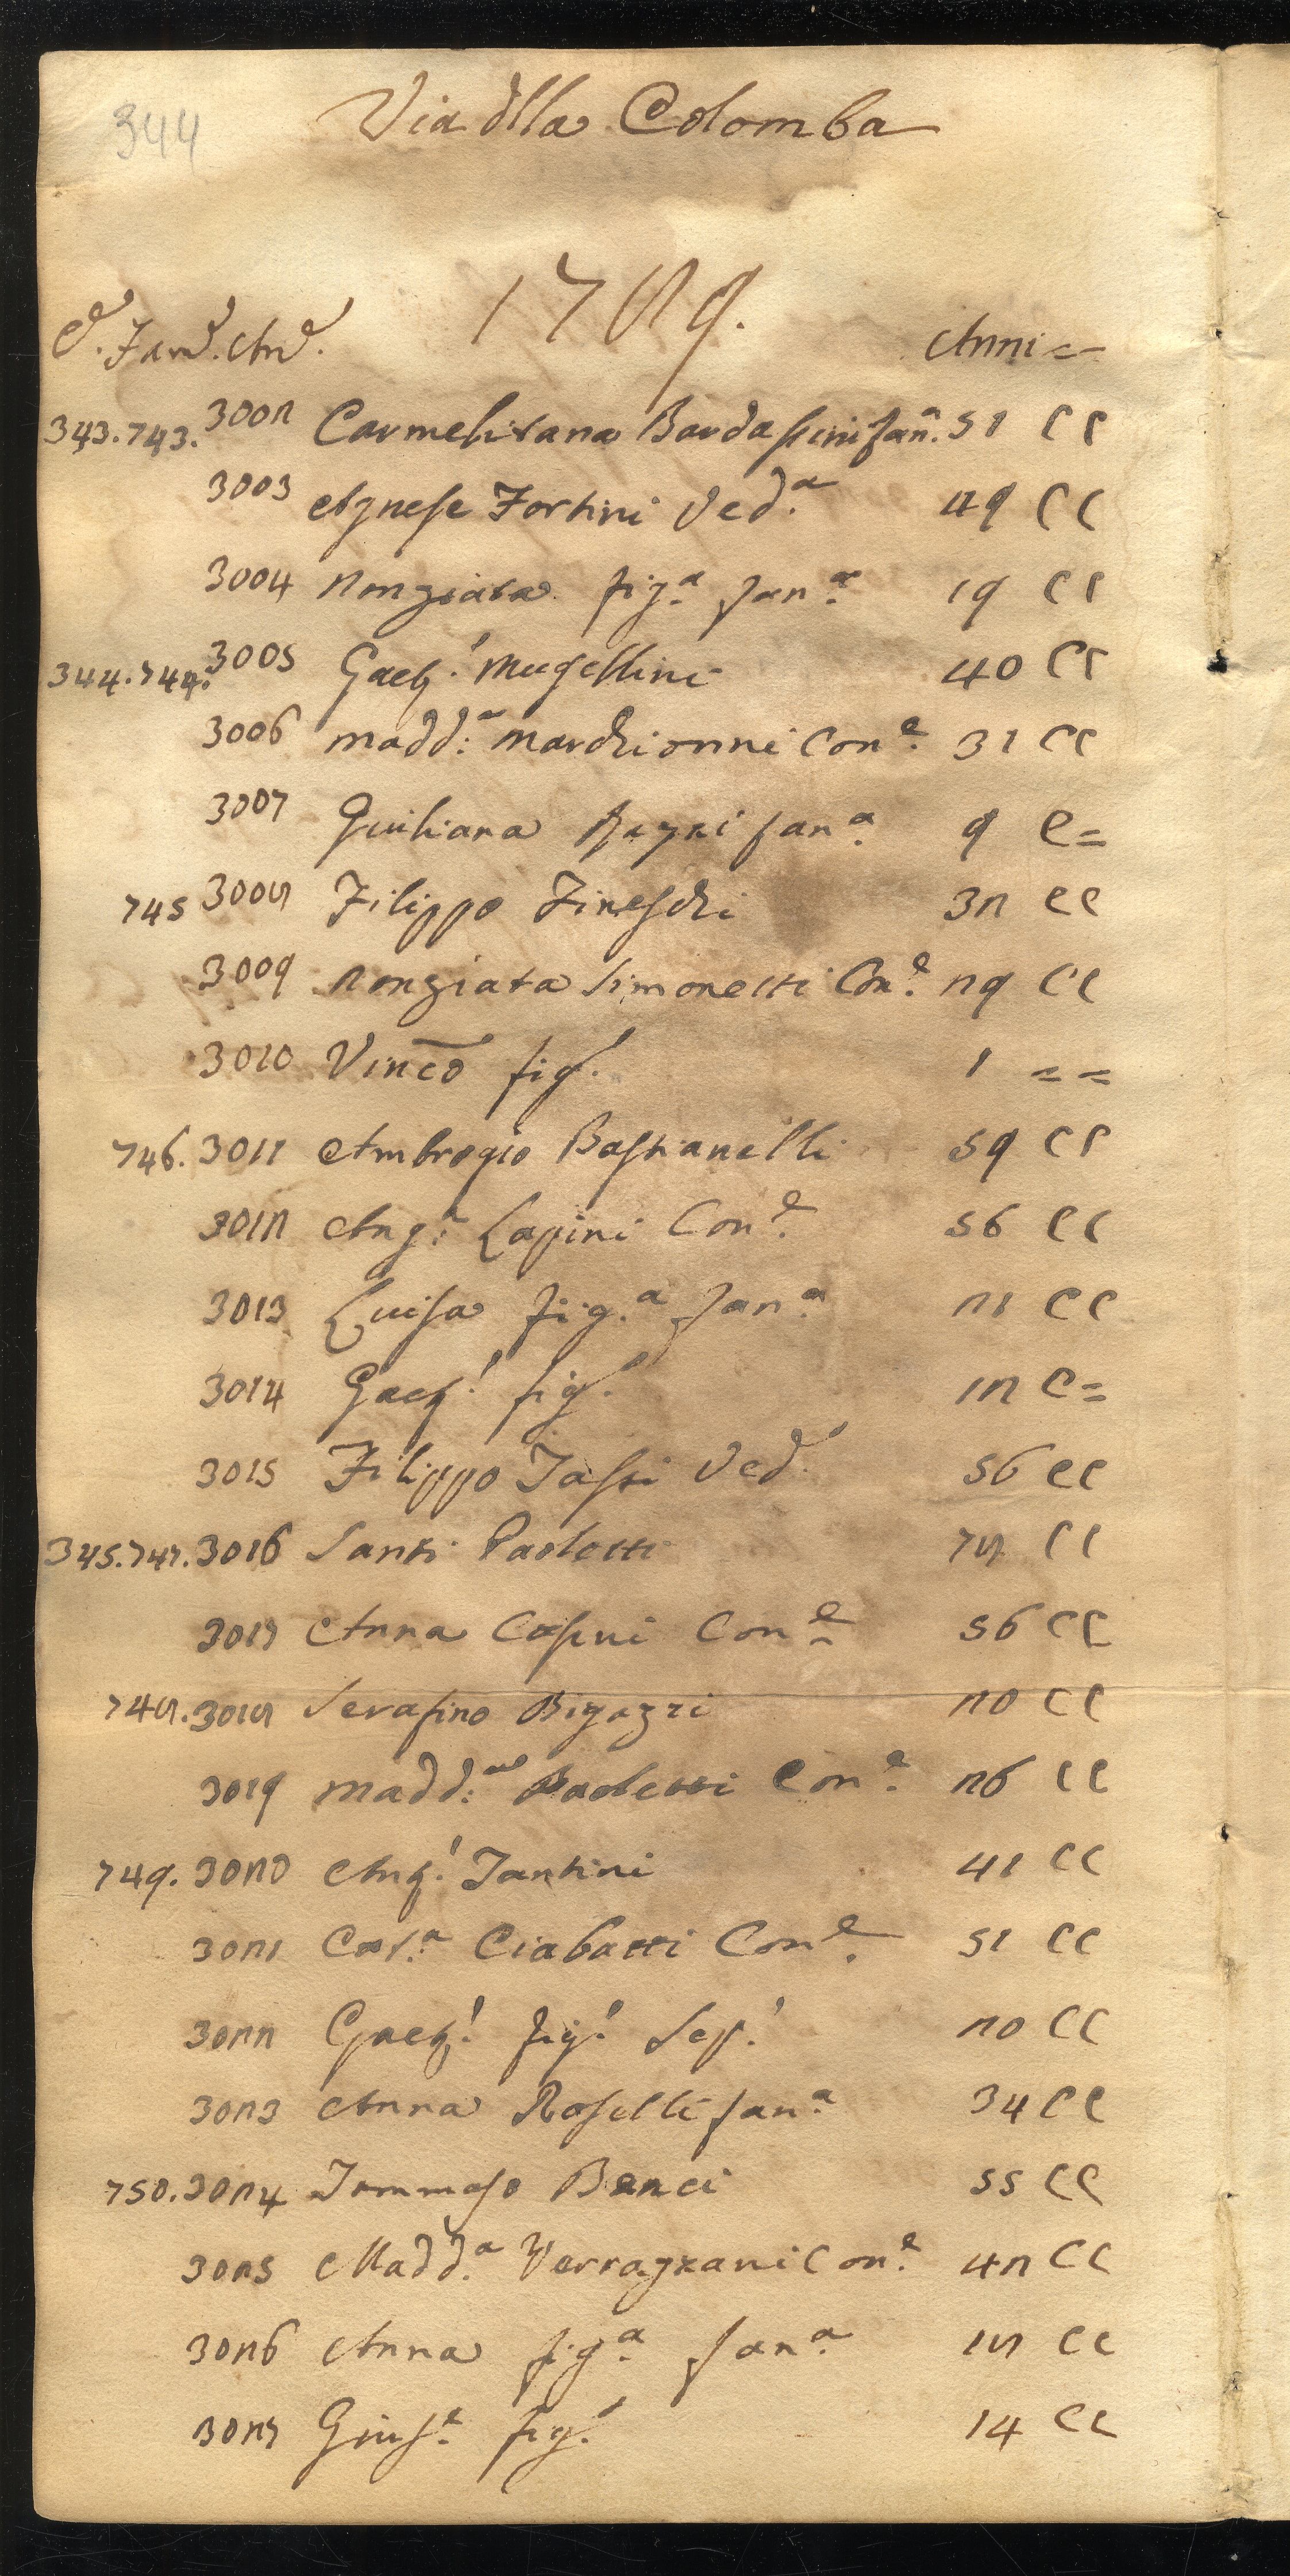 344
Via dlla Colomba
1789.
C. Fam. An. Anni =
343. 743. 3002 Carmelitana Bardassini fan. 51 C C
3003 Agnese Fortini Ved.a 49 C C
3004 Nonziata fig.a fan.a 19 C C
344. 744. 3005 Gaet. Mugellini 40 C C
3006 Madd.a Marchionni Con.e 31 C C
3007 Giuliana fan.a 9 C =
745 3008 Filippo Fineschi 32 C C
3009 Nonziata Simonetti Con.e 29 C C
3010 Vinco fig. 1 = =
746. 3011 Ambrogio Bastianelli 59 C C
3012 Ang.a Lapini Con.e 56 C C
3013 Luisa fig.a fan.a 21 C C
3014 Gaet. fig. 12 C =
3015 Filippo Tassi Ved. 56 C C
345. 747. 3016 Santi Paoletti 78 C C
3017 Anna Casini Con.e 56 C C
748. 3018 Serafino Bigazzi 20 C C
3019 Madd.a Paoletti Con.e 26 C C
749. 3020 Ang. Tantini 41 C C
3021 Cat.a Ciabatti Con.e 51 C C
3022 Gaet. fig. Sep. 20 C C
3023 Anna Roselli fan.a 34 C C
750. 3024 Tommaso Benci 55 C C
3025 Madd.a Verrazzani Con.e 42 C C
3026 Anna fig.a fan.a 18 C C
3027 Gius.e fig. 14 C C